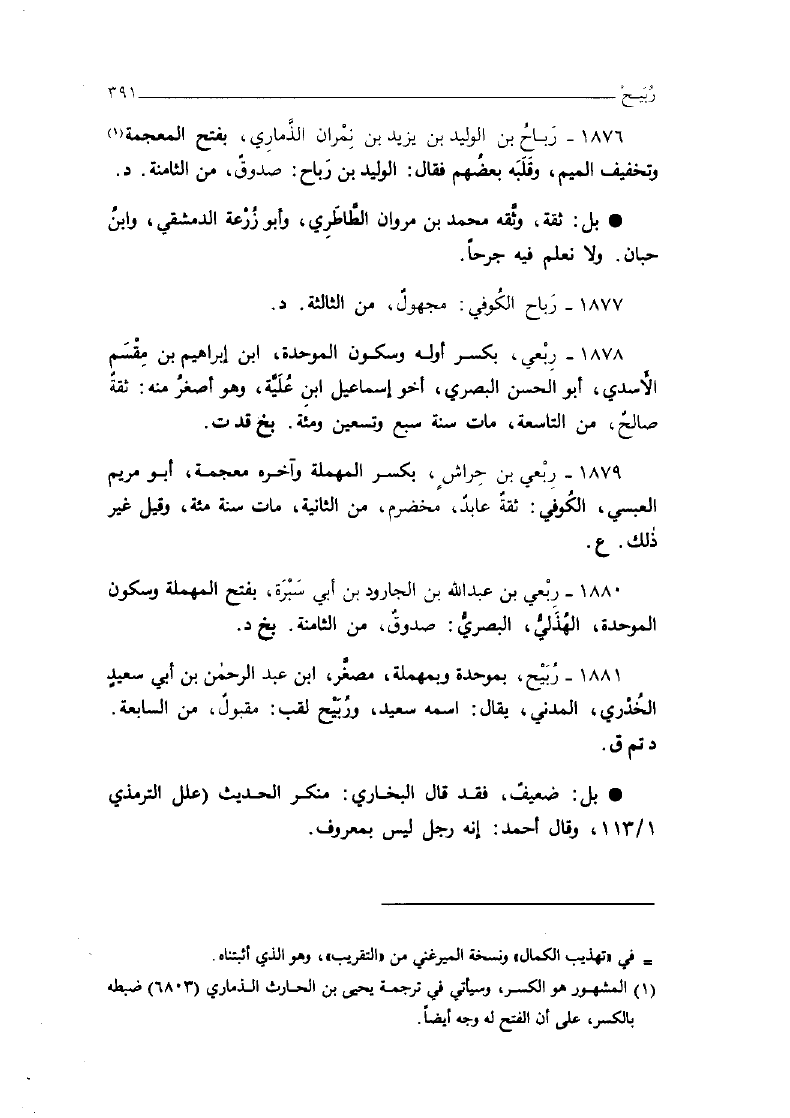 رُبَيح ٣٩١
١٨٧٦ ـ رَبـاحُ بن الوليد بن يزيد بن نِمْران الذَّماري، بفتح المعجمة(١)
وتخفيف الميم، وقَلَبَه بعضُهم فقال: الوليد بن رَباح: صدوقٌ، من الثامنة. د.
● بل: ثقة، وثَّقه محمد بن مروان الطَّاطَرِي، وأبو زُرْعة الدمشقي، وابنُ
حبان. ولا نعلم فيه جرحاً.
١٨٧٧ ـ رَباح الكُوفي: مجهولٌ، من الثالثة. د.
١٨٧٨ ـ رِبْعي، بكسـر أولـه وسكـون الموحدة، ابن إبراهيم بن مِقْسَم
الأَسدي، أبو الحسن البصري، أخو إسماعيل ابنِ عُلَيَّة، وهو أصغرُ منه: ثقةٌ
صالحٌ، من التاسعة، مات سنة سبع وتسعين ومئة. بخ قد ت.
١٨٧٩ ـ رِبْعي بن حِراشٍ، بكسـر المهملة وآخـره معجمـة، أبـو مريم
العبسي، الكُوفي: ثقةٌ عابدٌ، مخضرم، من الثانية، مات سنة مئة، وقيل غير
ذٰلك. ع.
١٨٨٠ ـ رِبْعي بن عبدالله بن الجارود بن أبي سَبْرَة، بفتح المهملة وسكون
الموحدة، الهُذَليُّ، البصريُّ: صدوقٌ، من الثامنة. بخ د.
١٨٨١ ـ رُبَيْح، بموحدة وبمهملة، مصغَّر، ابن عبد الرحمٰن بن أبي سعيدٍ
الخُدْري، المدني، يقال: اسمه سعيد، ورُبَيْح لقب: مقبولٌ، من السابعة.
د تم ق.
● بل: ضعيفٌ، فقـد قال البخـاري: منكـر الحـديث (علل الترمذي
١١٣/١، وقال أحمد: إنه رجل ليس بمعروف.
= في «تهذيب الكمال» ونسخة الميرغني من «التقريب»، وهو الذي أثبتناه.
(١) المشهـور هو الكسـر، وسيأتي في ترجمـة يحيى بن الحـارث الـذماري (٦٨٠٣) ضبطه
بالكسر، على أن الفتح له وجه أيضاً.